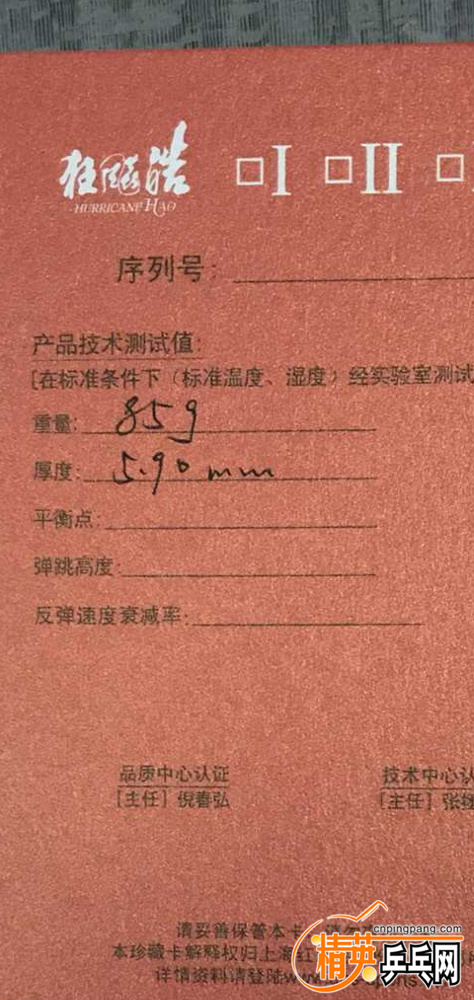 狂飚皓 □I □II □
HURRICANE HAO
序列号:
产品技术测试值:
[在标准条件下（标准温度、湿度）经实验室测试
重量: 85g
厚度: 5.90mm
平衡点:
弹跳高度:
反弹速度衰减率:
品质中心认证 技术中心认
[主任] 倪春弘 [主任] 张
请妥善保管本卡
本珍藏卡解释权归上海红
详情资料请登陆www.
cnpingpang.com
精英乒乓网